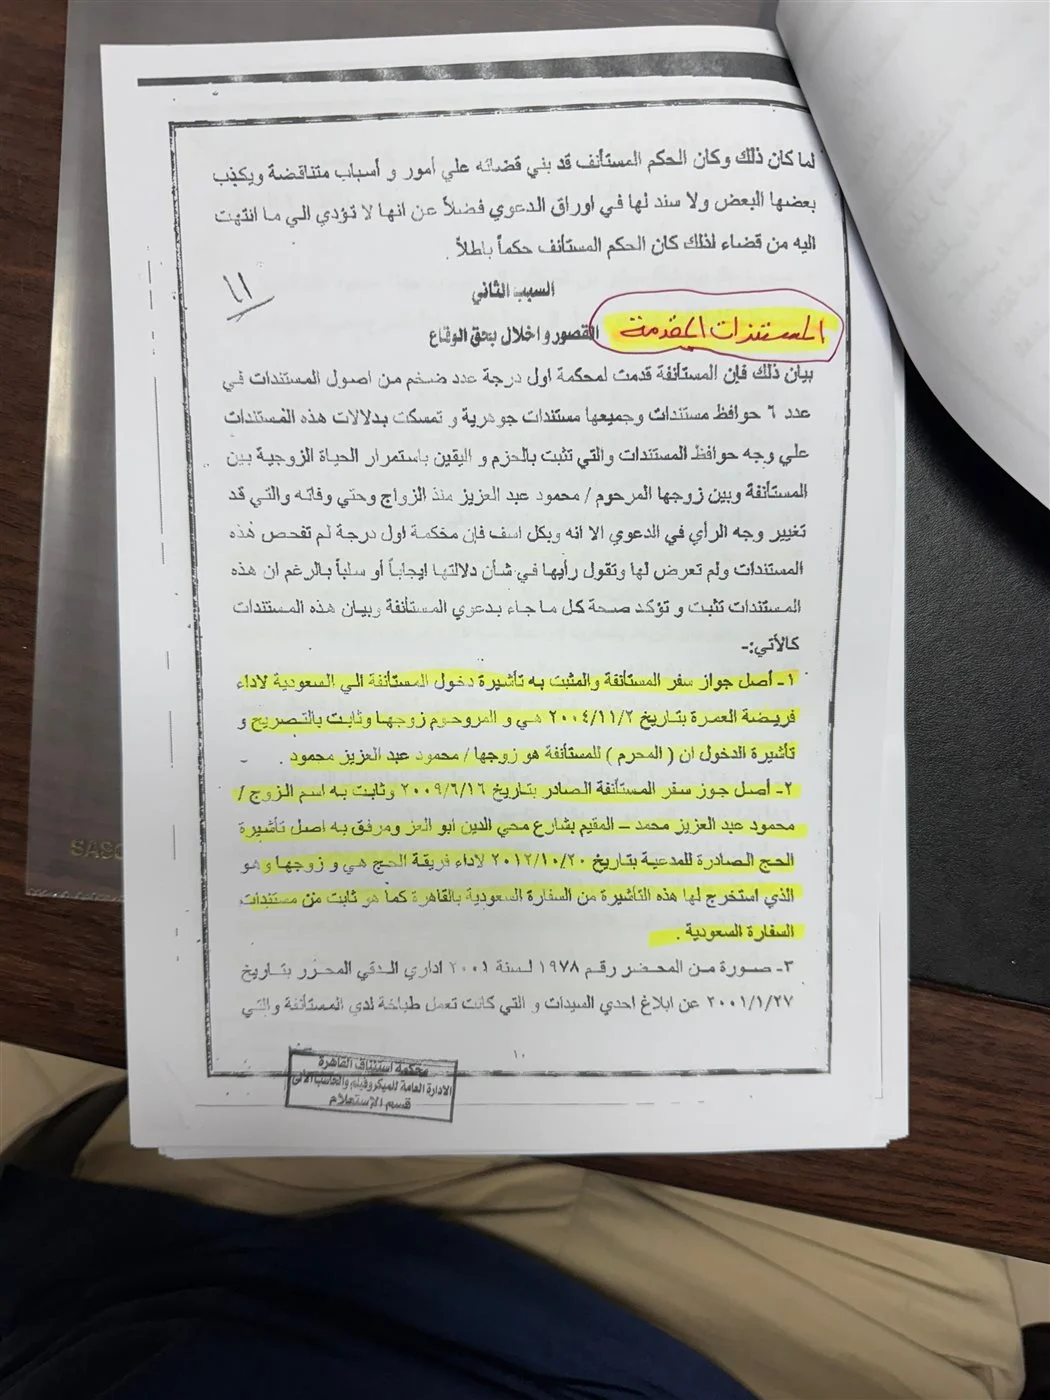 لما كان ذلك وكان الحكم المستأنف قد بني قضائه علي أمور و أسباب متناقضة ويكذب
بعضها البعض ولا سند لها في اوراق الدعوي فضلاً عن انها لا تؤدي الي ما انتهت
اليه من قضاء لذلك كان الحكم المستأنف حكماً باطلاً .
السبب الثاني
١١
المستندات المقدمة
القصور واخلال بحق الوفاع
بيان ذلك فإن المستأنفة قدمت لمحكمة اول درجة عدد ضخم من اصول المستندات في
عدد ٦ حوافظ مستندات وجميعها مستندات جوهرية و تمسكت بدلالات هذه المستندات
علي وجه حوافظ المستندات والتي تثبت بالحزم و اليقين باستمرار الحياة الزوجية بين
المستأنفة وبين زوجها المرحوم / محمود عبد العزيز منذ الزواج وحتي وفاته والتي قد
تغيير وجه الرأي في الدعوي الا انه وبكل اسف فإن محكمة اول درجة لم تفحص هذه
المستندات ولم تعرض لها وتقول رأيها في شأن دلالتها ايجاباً أو سلباً بالرغم ان هذه
المستندات تثبت و تؤكد صحة كل ما جاء بدعوي المستأنفة وبيان هذه المستندات
كالأتي:-
١- أصل جواز سفر المستأنفة والمثبت به تأشيرة دخول المستأنفة الي السعودية لاداء
فريضة العمرة بتاريخ ٢٠٠٤/١١/٢ هي و المروحوم زوجها وثابت بالتصريح و
تأشيرة الدخول ان ( المحرم ) للمستأنفة هو زوجها / محمود عبد العزيز محمود .
٢- أصل جوز سفر المستأنفة الصادر بتاريخ ٢٠٠٩/٦/١٦ وثابت به اسم الزوج /
محمود عبد العزيز محمد – المقيم بشارع محي الدين ابو العز ومرفق به اصل تأشيرة
الحج الصادرة للمدعية بتاريخ ٢٠١٢/١٠/٢٠ لاداء فريقة الحج هي و زوجها وهو
الذي استخرج لها هذه التأشيرة من السفارة السعودية بالقاهرة كما هو ثابت من مستندات
السفارة السعودية .
٣- صورة من المحضر رقم ١٩٧٨ لسنة ٢٠٠١ اداري الدقي المحرر بتاريخ
٢٠٠١/١/٢٧ عن ابلاغ احدي السيدات و التي كانت تعمل طباخة لدي المستأنفة والتي
١٠
محكمة استئناف القاهرة
الادارة العامة للميكروفيلم والحاسب الآلي
قسم الإستعلام